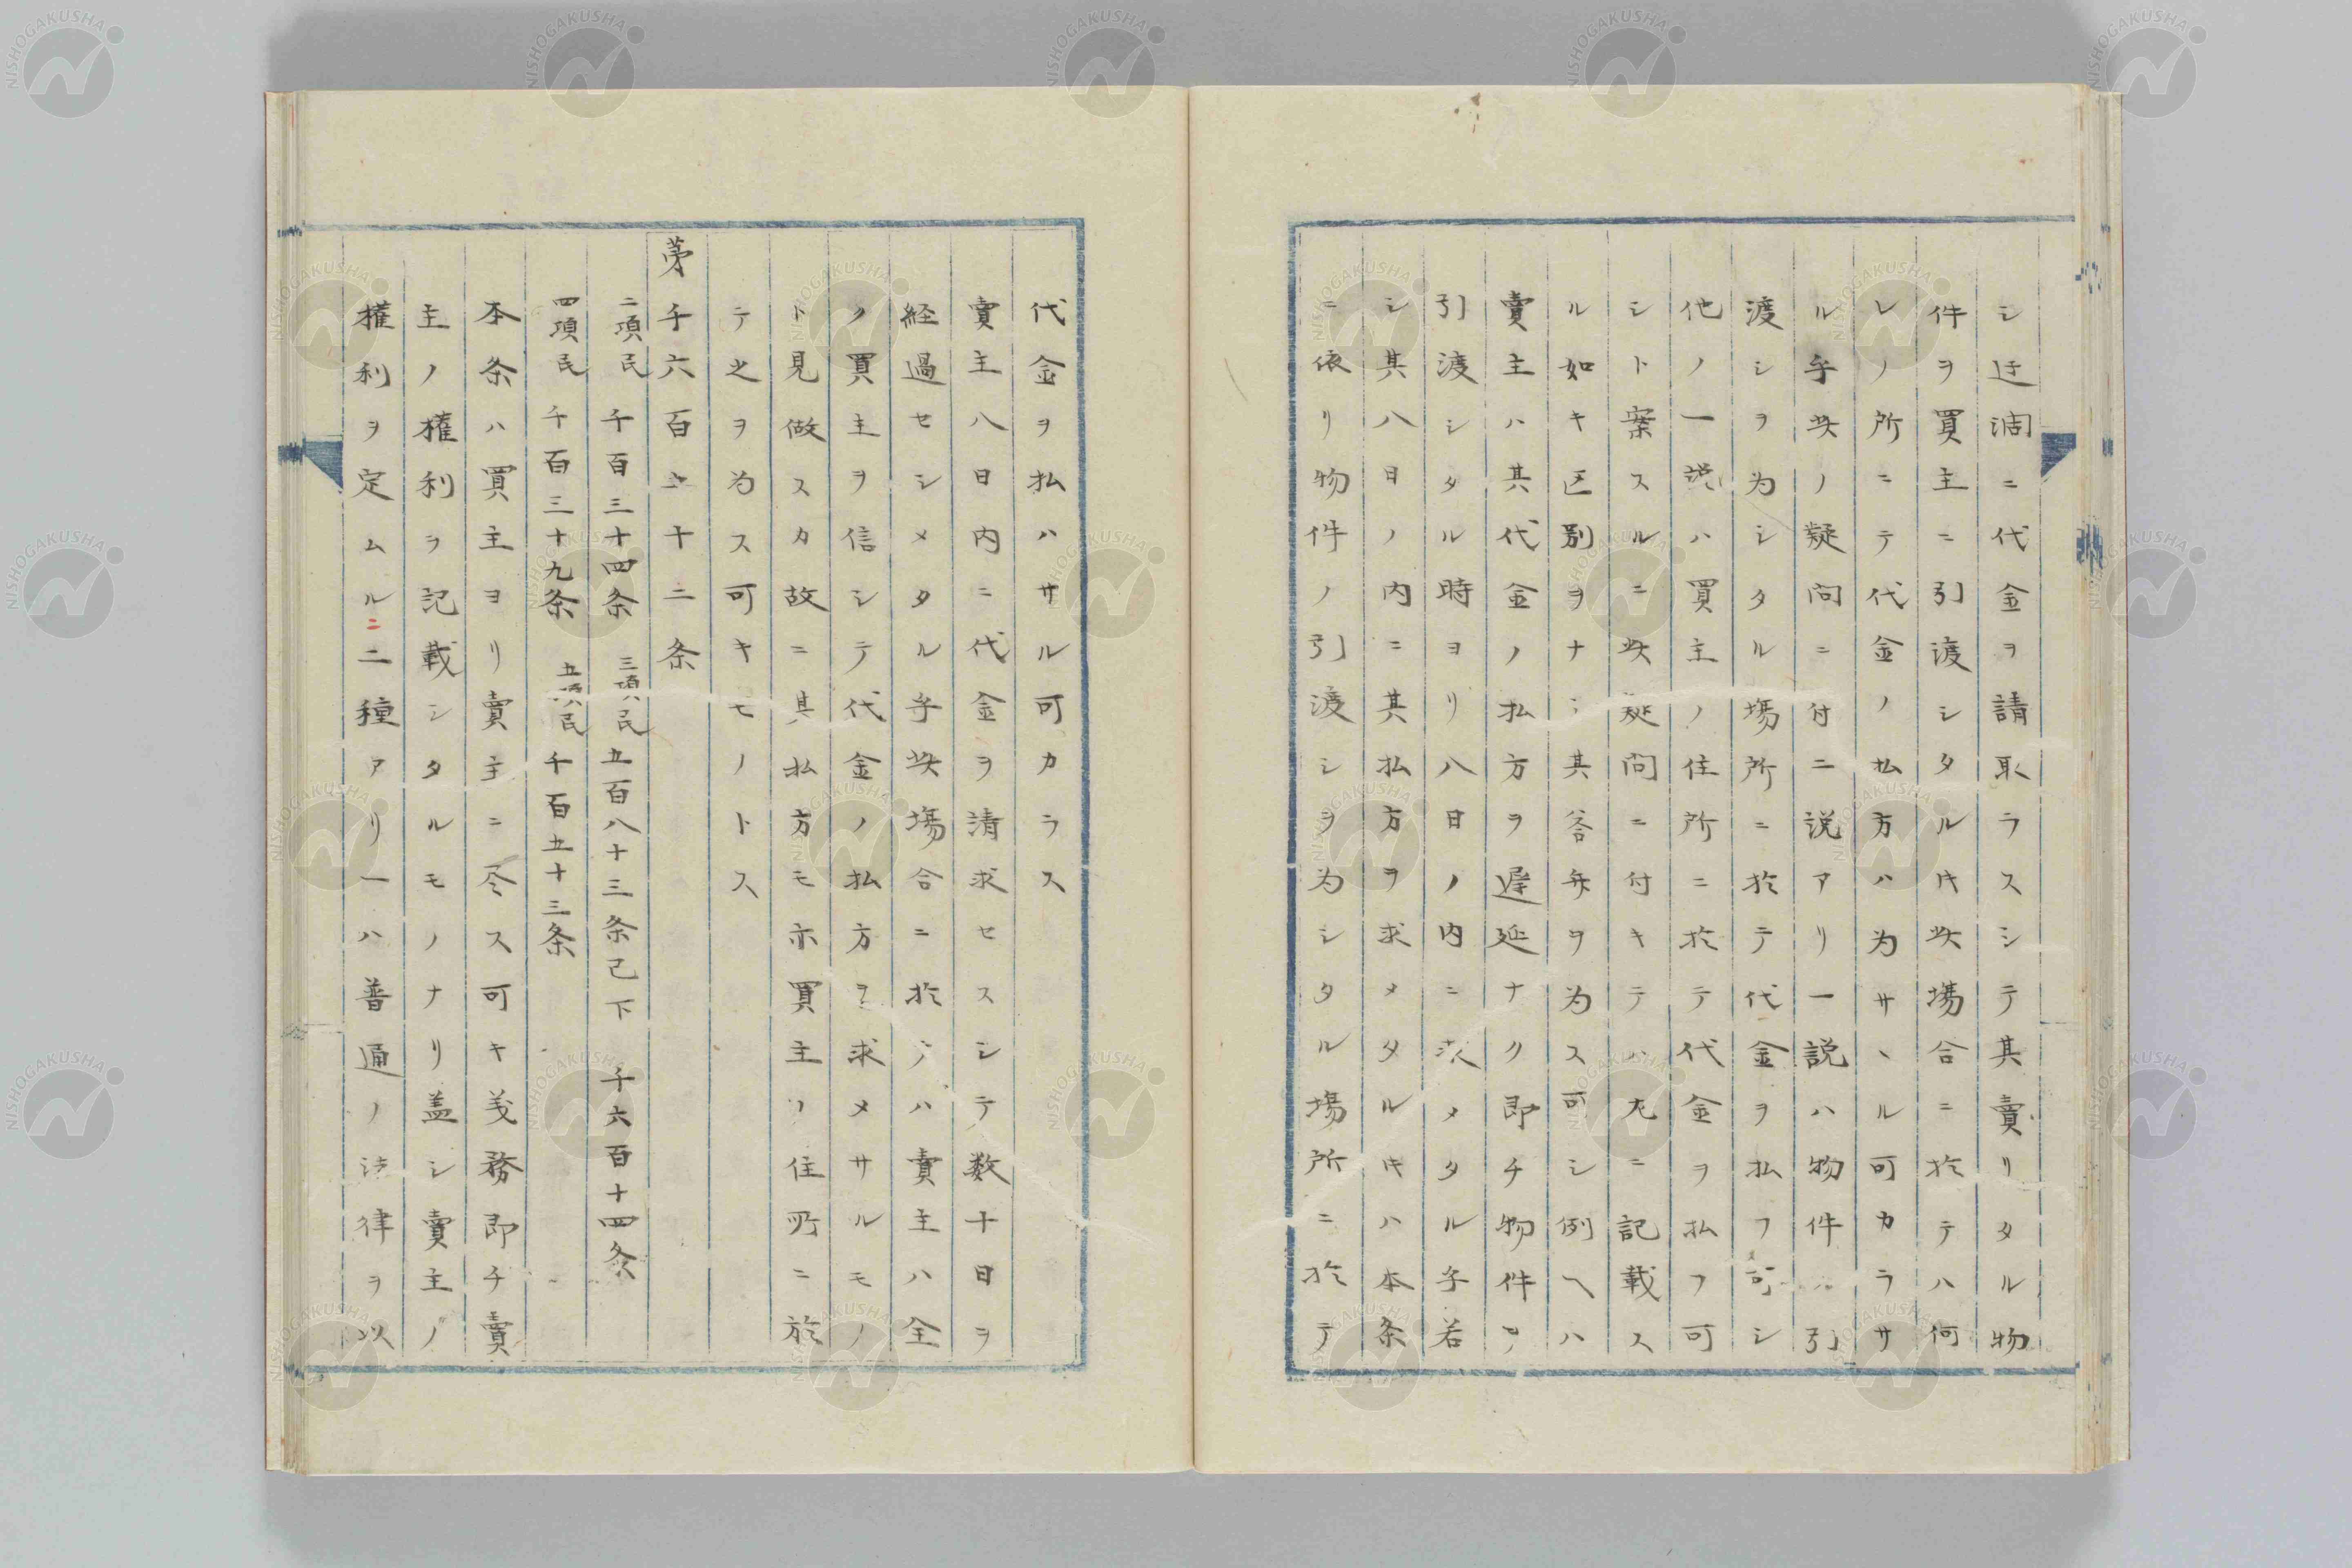 シ迂濶ニ代金ヲ請取ラスシテ其賣リタル物
件ヲ買主ニ引渡シタルキ此場合ニ於テハ何
レノ所ニテ代金ノ払方ハ為サヽル可カラサ
ル乎此ノ疑問ニ付二説アリ一説ハ物件ノ引
渡シヲ為シタル場所ニ於テ代金ヲ払フ可シ
他ノ一説ハ買主ノ住所ニ於テ代金ヲ払フ可
シト案スルニ此疑問ニ付キテハ左ニ記載ス
ル如キ区別ヲナシ其答弁ヲ為ス可シ例ヘハ
賣主ハ其代金ノ払方ヲ遅延ナク即チ物件ヲ
引渡シタル時ヨリ八日ノ内ニ求メタル乎若
シ其八日ノ内ニ其払方ヲ求メタルキハ本条
ニ依リ物件ノ引渡シヲ為シタル場所ニ於テ
代金ヲ払ハサル可カラス
賣主八日内ニ代金ヲ請求セスシテ数十日ヲ
経過セシメタル乎此場合ニ於テハ賣主ハ全
ク買主ヲ信シテ代金ノ払方ヲ求メサルモノ
ト見做スカ故ニ其払方モ亦買主ノ住所ニ於
テ之ヲ為ス可キモノトス
第千六百五十二条
二項民 千百三十四条 三項民 五百八十三条已下 千六百十四条
四項民 千百三十九条 五項民 千百五十三条
本条ハ買主ヨリ賣主ニ尽ス可キ義務即チ賣
主ノ権利ヲ記載シタルモノナリ盖シ賣主ノ
権利ヲ定ムルニ二種アリ一ハ普通ノ法律ヲ以